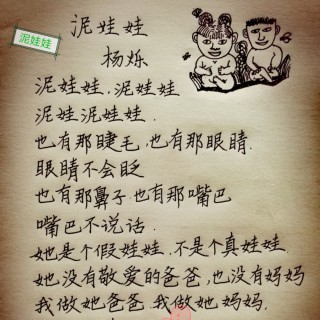 泥娃娃
泥娃娃
杨烁
泥娃娃,泥娃娃
泥娃泥娃娃.
也有那睫毛,也有那眼睛.
眼睛不会眨
也有那鼻子也有那嘴巴
嘴巴不说话.
她是个假娃娃.不是个真娃娃
她没有敬爱的爸爸,也没有妈妈
我做她爸爸.我做她妈妈.